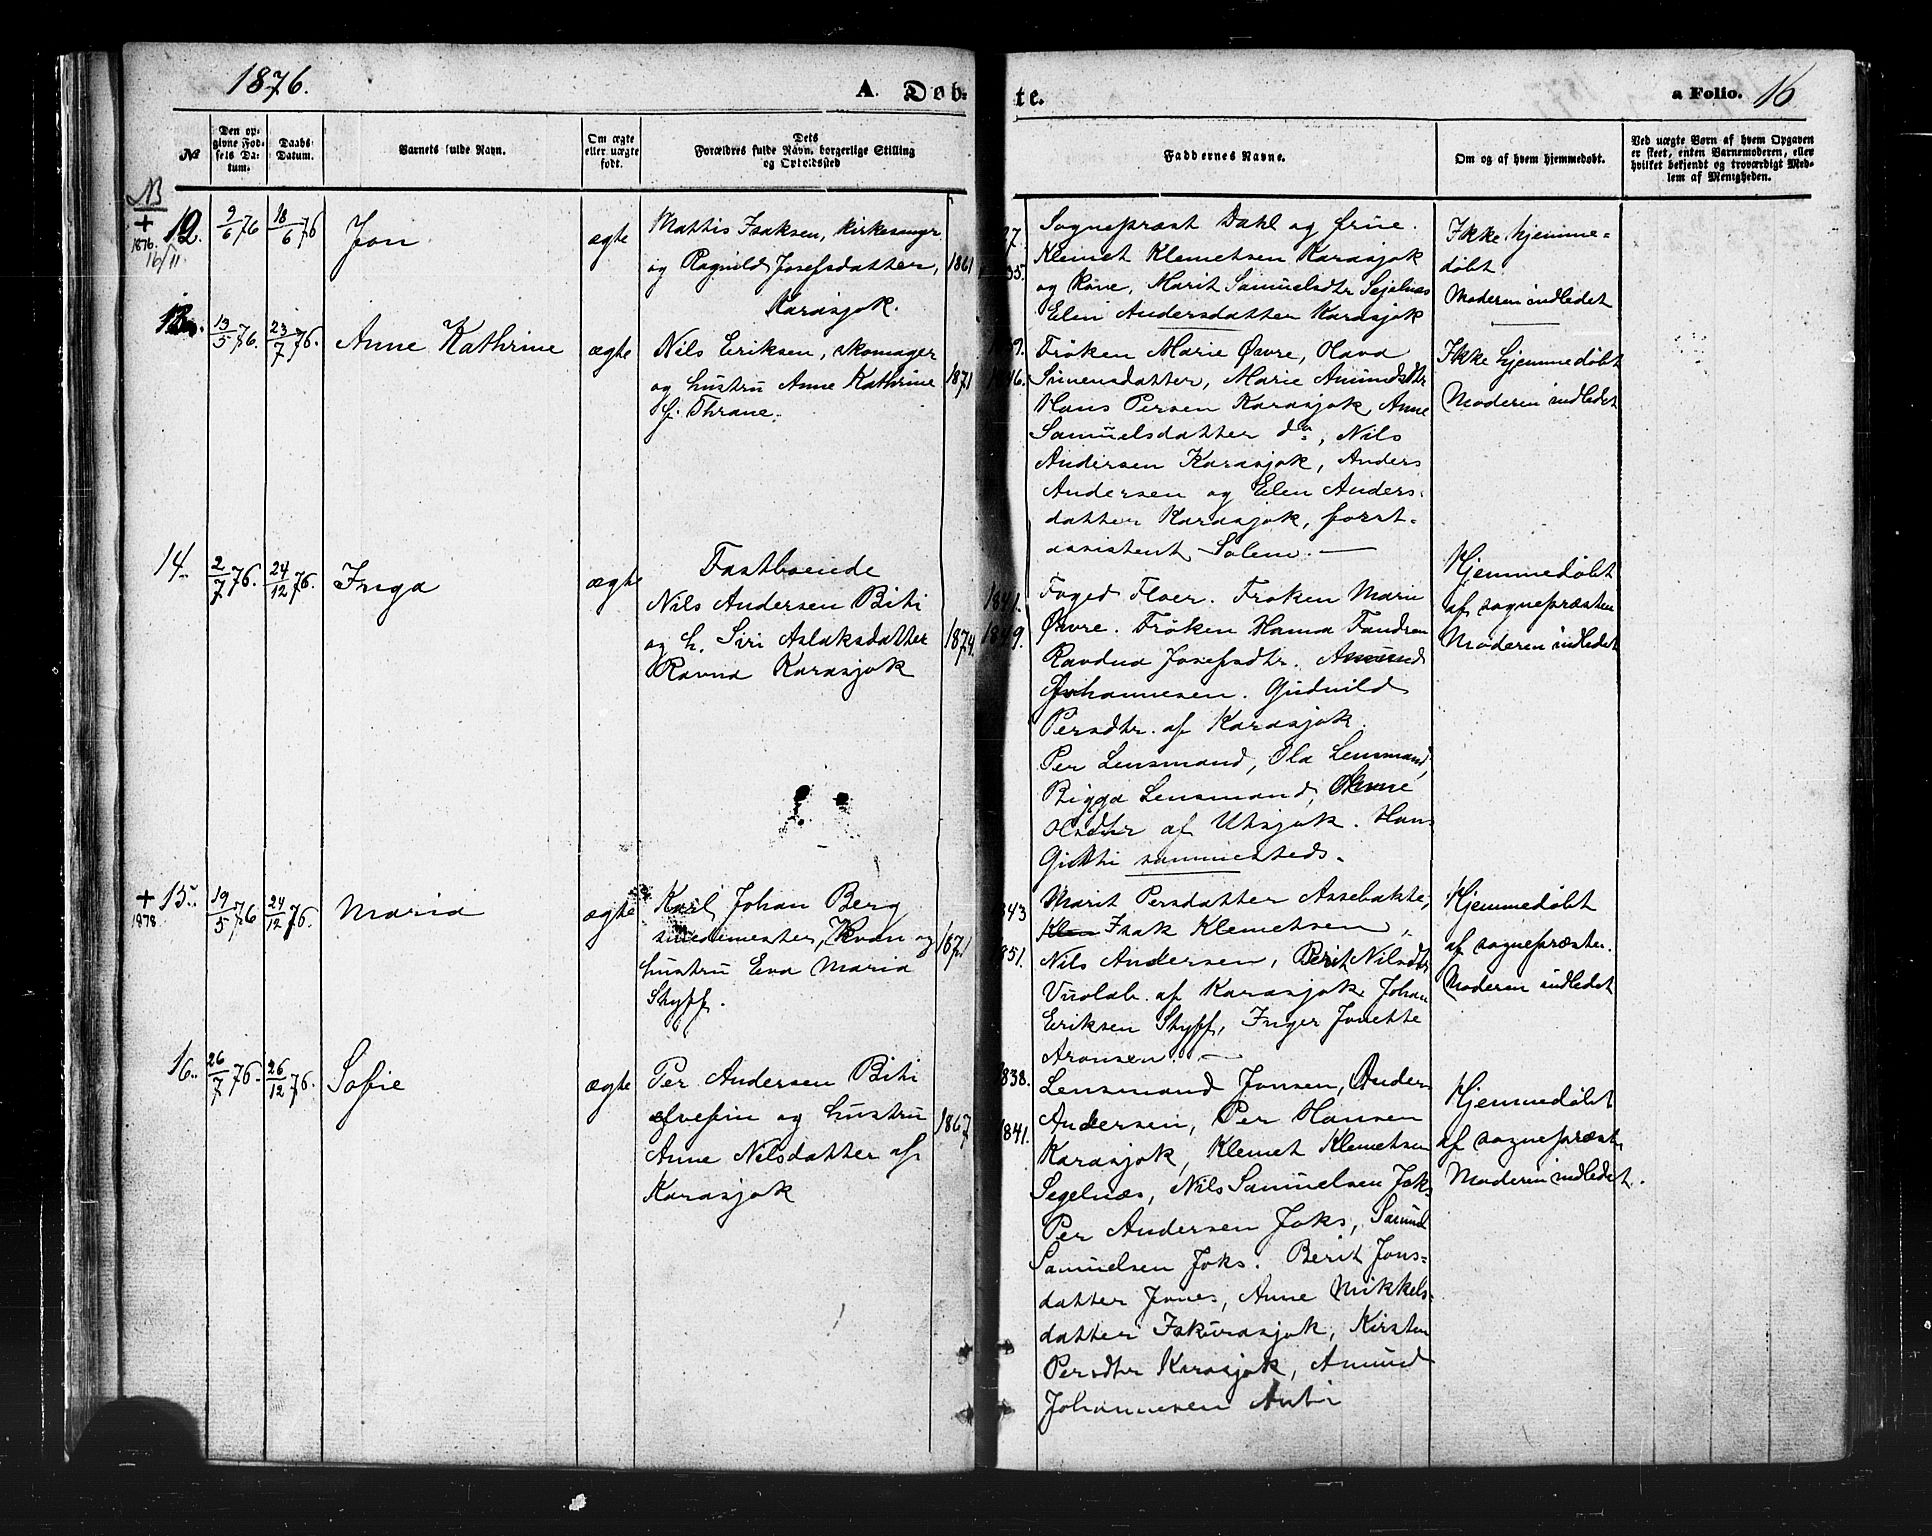 1876.
A. Døb-
te.
a Folio. 16
№
Den op-
givne Fød-
sels Da-
tum.
Daabs-
Datum.
Barnets fulde Navn.
Om ægte
eller uægte
født.
Dets
Forældres fulde Navn, borgerlige Stilling
og Opholdssted
Faddernes Navne.
Om og af hvem hjemmedøbt.
Ved uægte Børn af hvem Opgaven
er skeet, enten Barnemoderen, eller
hvilket bekjendt og troværdigt Med-
lem af Menigheden.
NB
+
1876.
16/11
12.
9/6 76
18/6 76
Jon
ægte
Mattis Isaksen, kirkesanger
og Ragnild Josefsdatter,
Karasjok.
1861
Sognepræst Dahl og frue.
Klemet Klemetsen Karasjok
og kone, Marit Samuelsdtr Sejelnæs
Elen Andersdatter Karasjok
Ikke hjemme=
døbt
Moderen indledet
13.
13/5 76.
23/7 76.
Anne Kathrine
ægte
Nils Eriksen, skomager
og hustru Anne Kathrine
f. Thrane.
1871
Frøken Marie Øvre,
datter, Marie Amundsdtr
Hans Persen Karasjok, Anne
Samuelsdatter do, Nils
Andersen Karasjok, Anders
Andersen og Elen Anders-
datter Karasjok, forst-
assistent Solem. —
Ikke hjemmedøbt
Moderen indledet
14.
2/7 76.
24/12 76.
Inga
ægte
Fastboende
Nils Andersen Biti
og h. Siri Aslaksdatter
Ravna Karasjok
1874.
1841.
1849.
Foged Floer. Frøken Marie
Øvre. Frøken Hanna Fandrem
Ravdna Josefsdtr. Amund
Johannesen. Gudnild
Persdtr. af Karasjok.
Per Lensmand, Ola Lensmand,
Bigga Lensmand,
Olsdtr af Utsjok. Hans
Gutti sammesteds.
Hjemmedøbt
af sognepræsten
Moderen indledet
+
1878
15.
19/5 76
24/12 76.
Maria
ægte
Karl Johan Berg
smedemester, Kvæn og
hustru Eva Maria
Styff.
1871
843
851.
Marit Persdatter Assebakte,
Klem Isak Klemetsen,
Nils Andersen, Berit Nilsdtr
Vuolab. af Karasjok. Johan
Eriksen Styff, Inger Jonette
Aronsen. —
Hjemmedøbt
af sognepræsten.
Moderen indledet
16.
26/7 76.
26/12 76.
Sofie
ægte
Per Andersen Biti
og hustru
Anne Nilsdatter af
Karasjok
1867
838.
1841.
Lensmand Jonsen, Anders
Andersen, Per Hansen
Karasjok, Klemet Klemetsen
Segelnæs, Nils Samuelsen Joks
Per Andersen Joks, Samuel
Samuelsen Joks. Berit Jons-
datter Jones, Anne Mikkels-
datter Iskurasjok, Kirsten
Persdtr Karasjok, Amund
Johannesen Anti
Hjemmedøbt
af sognepræsten
Moderen indledet.